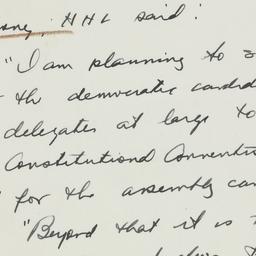 HHL said:
"I am planning to
the democratic candid
delegates at large to
Constitutional Conventi
for the assembly can
"Beyond that it is